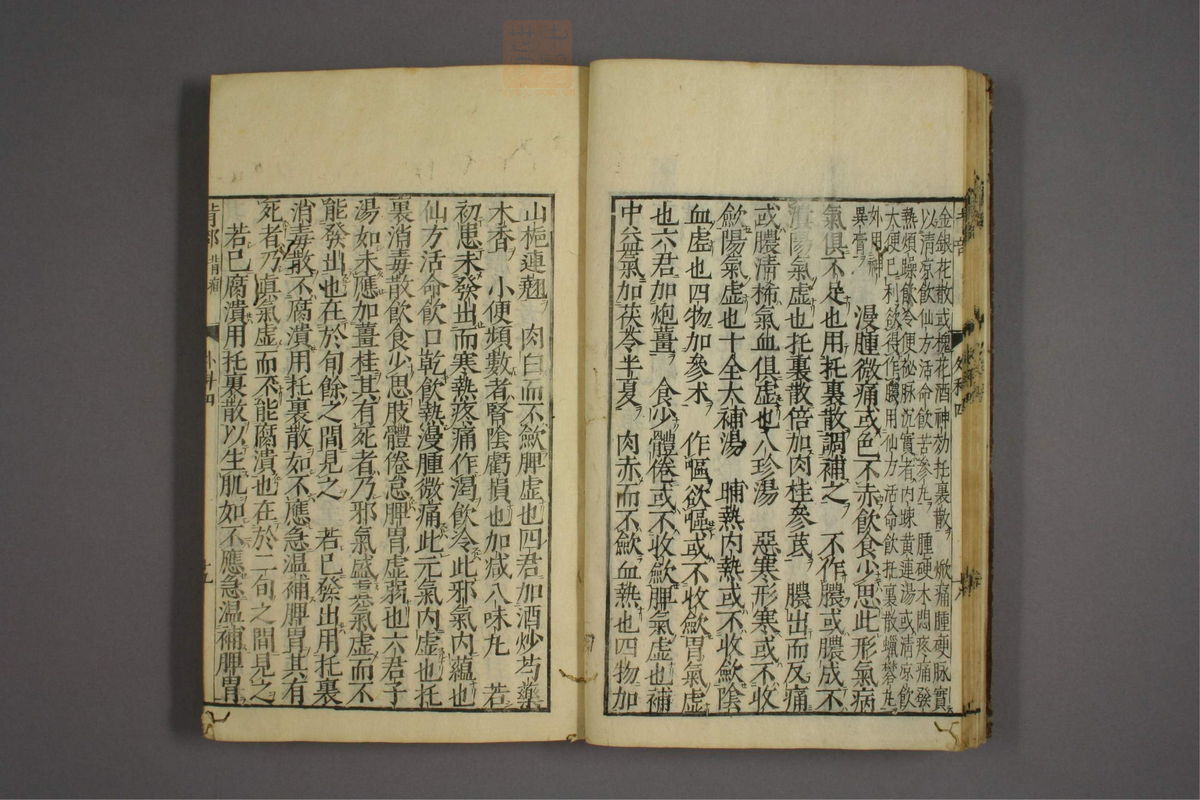 金銀花散或槐花酒神効托裏散 焮痛腫硬脉實
以清凉飲仙方活命飲苦參丸 腫硬木悶疼痛發
熱煩躁飲冷便秘脉沉實者内疎黄連湯或清凉飲
大便已利欲得作膿用仙方活命飲托裏散蠟礬丸
外用神
異膏 漫腫微痛或色不赤飲食少思此形氣病
氣俱不足也用托裏散調補之 不作膿或膿成不
潰陽氣虚也托裏散倍加肉桂參芪 膿出而反痛
或膿清稀氣血俱虚也八珍湯 惡寒形寒或不收
歛陽氣虚也十全大補湯 晡熱内熱或不收歛陰
血虚也四物加參术 作嘔欲嘔或不收歛胃氣虚
也六君加炮薑 食少體倦或不收歛脾氣虚也補
中益氣加茯苓半夏 肉赤而不歛血熱也四物加
山梔連翹 肉白而不歛脾虚也四君加酒炒芍藥
木香 小便頻數者腎陰虧損也加减八味丸 若
初患未發出而寒熱疼痛作渴飲冷此邪氣内蘊也
仙方活命飲口乾飲熱漫腫微痛此元氣内虚也托
裏消毒散飲食少思肢體倦怠脾胃虚弱也六君子
湯如未應加薑桂其有死者乃邪氣盛眞氣虚而不
能發出也在於旬餘之間見之 若已發出用托裏
消毒散不腐潰用托裏散如不應急温補脾胃其有
死者乃眞氣虚而不能腐潰也在於二旬之間見之
若已腐潰用托裏散以生肌如不應急温補脾胃